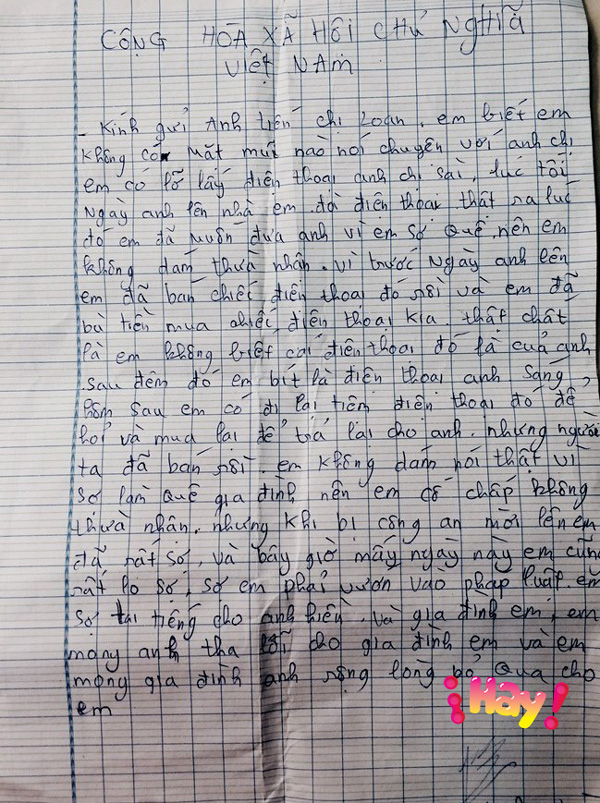 CỘNG HÒA XÃ HỘI CHỦ NGHĨA
VIỆT NAM
- Kính gửi Anh tiến chị Loan. em biết em
không có mặt mũi nào nói chuyện với anh chị
em có lỡ lấy điện thoại anh chị sài, lúc tối
Ngày anh lên nhà em đòi điện thoại thật ra lúc
đó em đã muốn đưa anh vì em sợ quê nên em
không dám thừa nhận. vì trước Ngày anh lên
em đã bán chiếc điện thoại đó rồi và em đã
bù tiền mua chiếc điện thoại kia. thật chất
là em không biết cái điện thoại đó là của anh
sau đêm đó em bít là điện thoại anh sáng
hôm sau em có đi lại tiệm điện thoại đó để
hỏi và mua lại để trả lại cho anh. nhưng người
ta đã bán rồi. em không dám nói thật vì
sợ làm quê gia đình nên em cố chấp không
thừa nhận. nhưng khi bị công an mời lên em
đã rất sợ, và bây giờ mấy ngày này em cũng
rất lo sợ, sợ em phải vướn vào pháp luật. em
sợ tai tiếng cho anh hiền. và gia đình em, em
mong anh tha lỗi cho gia đình em và em
mong gia đình anh rộng lòng bỏ qua cho
em
Hay!